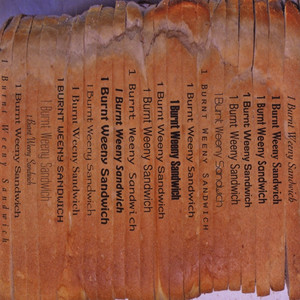 1 Burnt Weeny Sandwich
1 Burnt Weeny Sandwich
1 Burnt Weeny Sandwich
1 Burnt Weeny Sandwich
1 BURNT WEENY SANDWICH
1 Burnt Weeny Sandwich
1 Burnt Weeny Sandwich
1 Burnt Weeny Sandwich
1 Burnt Weeny Sandwich
1 Burnt Weeny Sandwich
1 Burnt Weeny Sandwich
1 Burnt Weeny Sandwich
1 BURNT WEENY SANDWICH
1 Burnt Weeny Sandwich
1 Burnt Weeny Sandwich
1 Burnt Weeny Sandwich
1 Burnt Weeny Sandwich
1 Burnt Weeny Sandwich
1 Burnt Weeny Sandwich